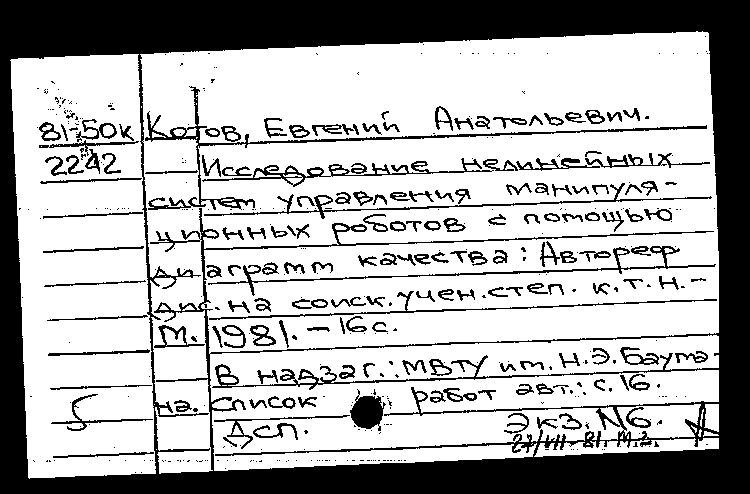 81-50к Котов, Евгений Анатольевич.
2242 Исследование нелинейных
систем управления манипуля-
ционных роботов с помощью
диаграмм качества: Автореф
дис. на соиск. учен. степ. к.т.н.-
М. 1981. - 16 с.
В надзаг.: МВТУ им. Н.Э. Баума-
на. Список работ авт.: с. 16.
5
Дсп. Экз. N6.
27/VII-81. М.З.